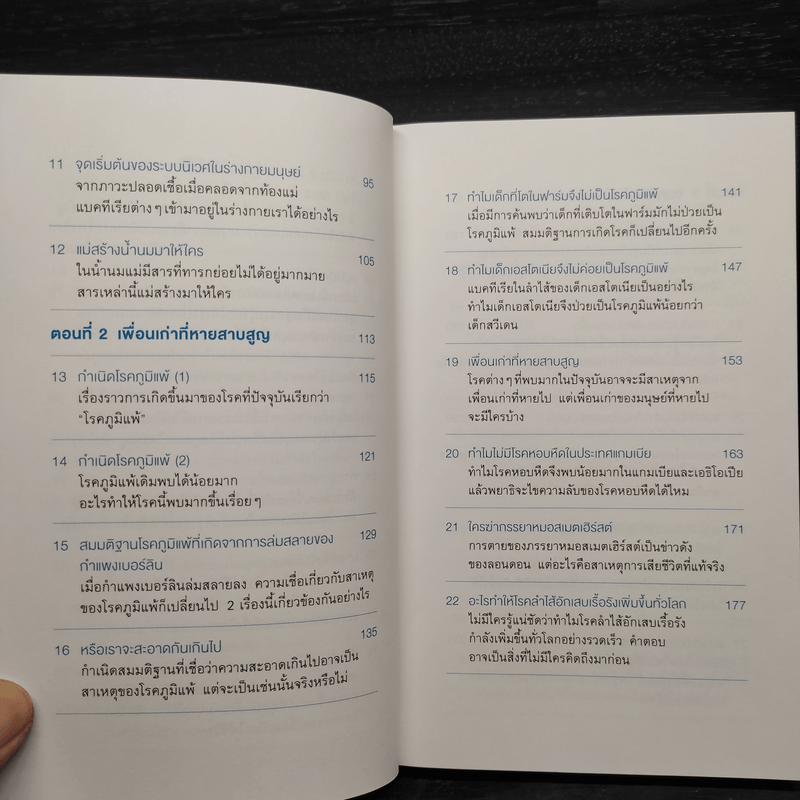 11 จุดเริ่มต้นของระบบนิเวศในร่างกายมนุษย์ 95
จากภาวะปลอดเชื้อเมื่อคลอดจากท้องแม่
แบคทีเรียต่างๆ เข้ามาอยู่ในร่างกายเราได้อย่างไร
12 แม่สร้างน้ำนมมาให้ใคร 105
ในน้ำนมแม่มีสารที่ทารกย่อยไม่ได้อยู่มากมาย
สารเหล่านี้แม่สร้างมาให้ใคร
ตอนที่ 2 เพื่อนเก่าที่หายสาบสูญ 113
13 กำเนิดโรคภูมิแพ้ (1) 115
เรื่องราวการเกิดขึ้นมาของโรคที่ปัจจุบันเรียกว่า
“โรคภูมิแพ้”
14 กำเนิดโรคภูมิแพ้ (2) 121
โรคภูมิแพ้เดิมพบได้น้อยมาก
อะไรทำให้โรคนี้พบมากขึ้นเรื่อยๆ
15 สมมติฐานโรคภูมิแพ้ที่เกิดจากการล่มสลายของ 129
กำแพงเบอร์ลิน
เมื่อกำแพงเบอร์ลินล่มสลายลง ความเชื่อเกี่ยวกับสาเหตุ
ของโรคภูมิแพ้ก็เปลี่ยนไป 2 เรื่องนี้เกี่ยวข้องกันอย่างไร
16 หรือเราจะสะอาดกันเกินไป 135
กำเนิดสมมติฐานที่เชื่อว่าความสะอาดเกินไปอาจเป็น
สาเหตุของโรคภูมิแพ้ แต่จะเป็นเช่นนั้นจริงหรือไม่
17 ทำไมเด็กที่โตในฟาร์มจึงไม่เป็นโรคภูมิแพ้ 141
เมื่อมีการค้นพบว่าเด็กที่เติบโตในฟาร์มมักไม่ป่วยเป็น
โรคภูมิแพ้ สมมติฐานการเกิดโรคก็เปลี่ยนไปอีกครั้ง
18 ทำไมเด็กเอสโตเนียจึงไม่ค่อยเป็นโรคภูมิแพ้ 147
แบคทีเรียในลำไส้ของเด็กเอสโตเนียเป็นอย่างไร
ทำไมเด็กเอสโตเนียจึงป่วยเป็นโรคภูมิแพ้น้อยกว่า
เด็กสวีเดน
19 เพื่อนเก่าที่หายสาบสูญ 153
โรคต่างๆ ที่พบมากในปัจจุบันอาจจะมีสาเหตุจาก
เพื่อนเก่าที่หายไป แต่เพื่อนเก่าของมนุษย์ที่หายไป
จะมีใครบ้าง
20 ทำไมไม่มีโรคหอบหืดในประเทศแกมเบีย 163
ทำไมโรคหอบหืดจึงพบน้อยมากในแกมเบียและเอธิโอเปีย
แล้วพยาธิจะไขความลับของโรคหอบหืดได้ไหม
21 ใครฆ่ากรรยาหมอสเมตเฮิร์สต์ 171
การตายของภรรยาหมอสเมตเฮิร์สต์เป็นข่าวดัง
ของลอนดอน แต่อะไรคือสาเหตุการเสียชีวิตที่แท้จริง
22 อะไรทำให้โรคลำไส้อักเสบเรื้อรังเพิ่มขึ้นทั่วโลก 177
ไม่มีใครรู้แน่ชัดว่าทำไมโรคลำไส้อักเสบเรื้อรัง
กำลังเพิ่มขึ้นทั่วโลกอย่างรวดเร็ว คำตอบ
อาจเป็นสิ่งที่ไม่มีใครคิดถึงมาก่อน